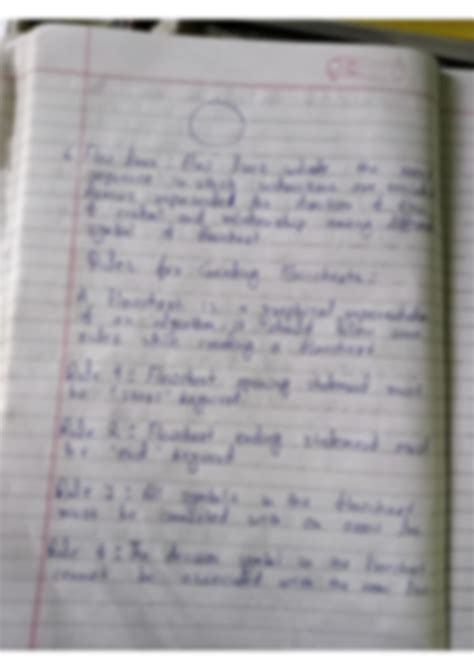 Flow lines: Flow lines indicate the exact
sequence in which instructions are executed
represented the direction of flow
of control and relationship among different
symbol of flowchart
Rules for Creating Flowcharts:
A flowchart is a graphical representation
of an algorithm, it should follow some
rules while creating a flowchart
Rule 1: Flowchart opening statement must
be "start" keyword
Rule 2: Flowchart ending statement must
be "end" keyword
Rule 3: All symbols in the flowchart
must be connected with an arrow line
Rule 4: The decision symbol in the flowchart
cannot be associated with the arrow line